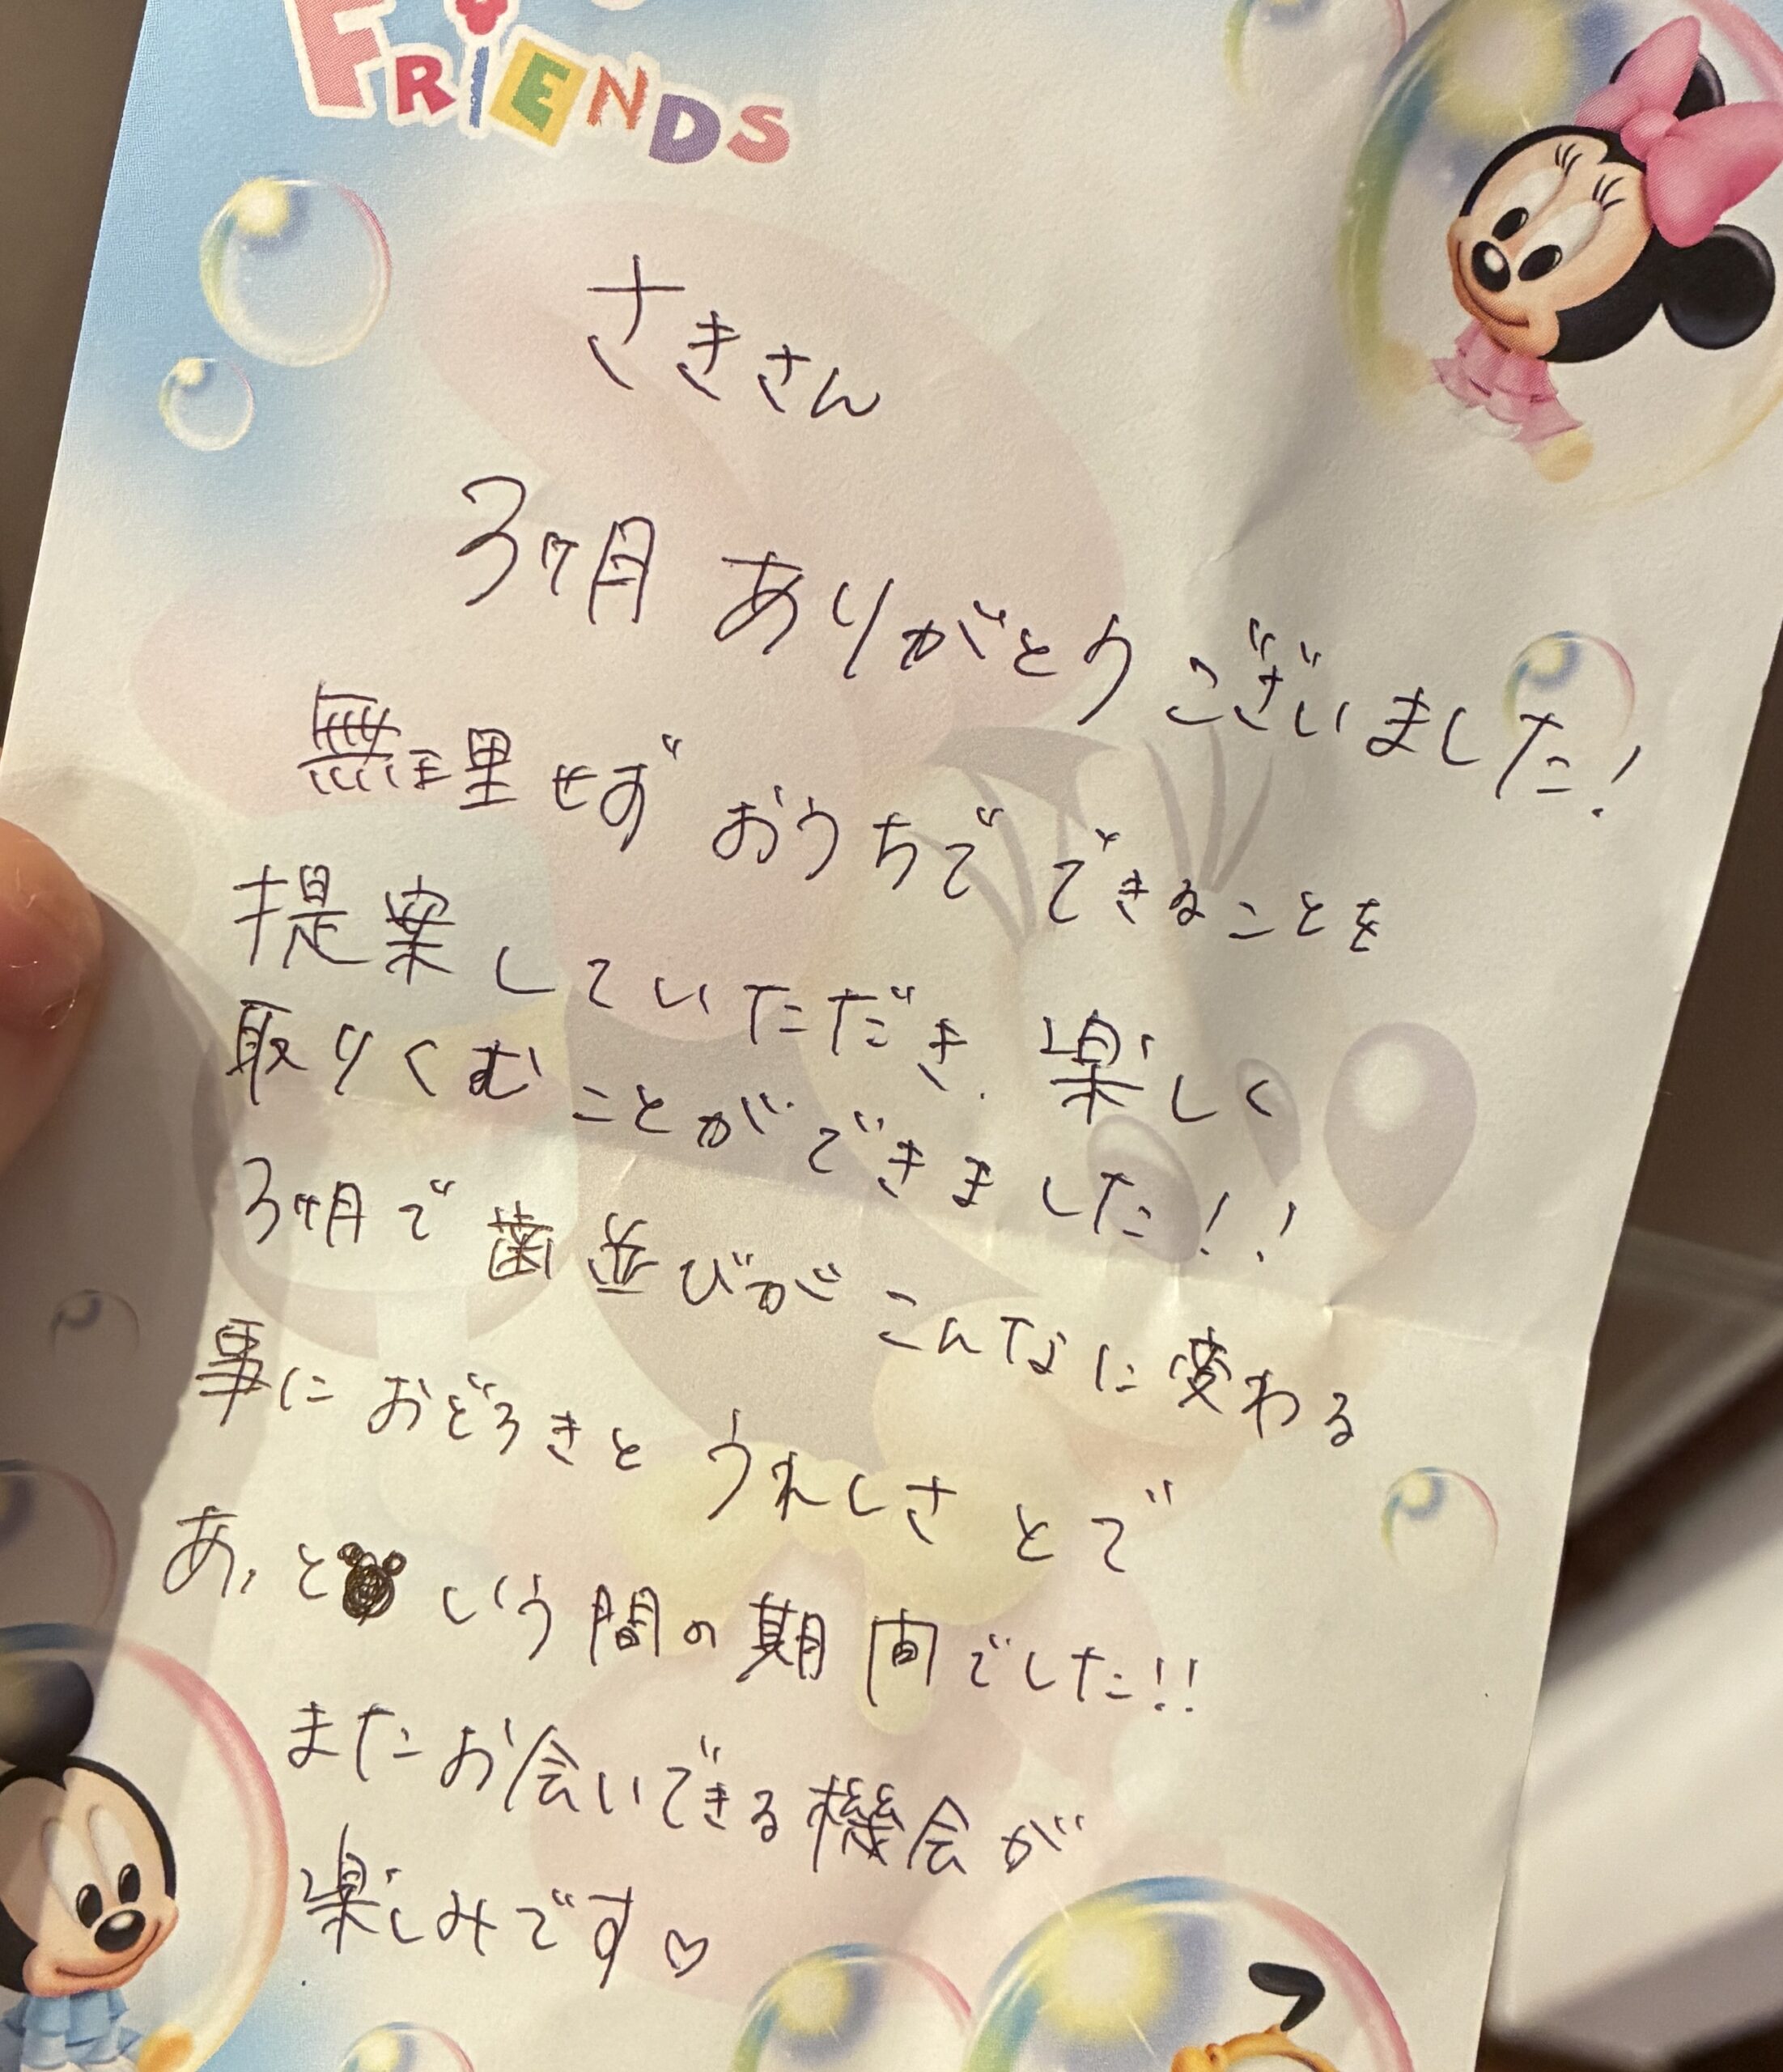 FRIENDS
さきさん
3ヶ月 ありがとうございました!
無理せず おうちで できることを
提案していただき、楽しく
取りくむことができました!!
3ヶ月で 歯並びが こんなに変わる
事に おどろきと うれしさ とで
あっと いう間の期間でした!!
またお会いできる機会が
楽しみです♡